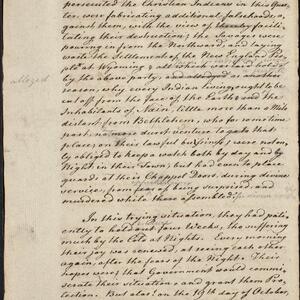 persecuted the Christian Indians in this Quar-
ter, were fabricating additional falsehoods a-
gainst them, with the view of facili-
tating their destruction; the Savages were
pouring in from the Northward, and laying
waste the Settlements of the New England Peo-
ple at Wyoming; and which was laid hold of
by the above party, and as another
alleged
reason, why every Indian living ought to be
cut off from the face of the Earth; and the
Inhabitants of Nain, little more than a Mile
distant from Bethlehem, who for some time
past, no more durst venture to quit that
place, on their lawful business, were not on-
ly obliged to keep a watch both by day and by
Night in their Town; but had even to place
guards at their Chappel Doors, during divine
service, from fear of being surprized, and
murdered while there assembled.
In this trying situation, they had pati-
ently to hold out four Weeks, tho suffering
much by the Cold at Nights. Every morning
their joy was renewed, at seeing each other
again, after the fears of the Night. Their
hopes were that Government would commi-
serate their situation, and grant them Pro-
tection. But alas! on the 19th day of October,